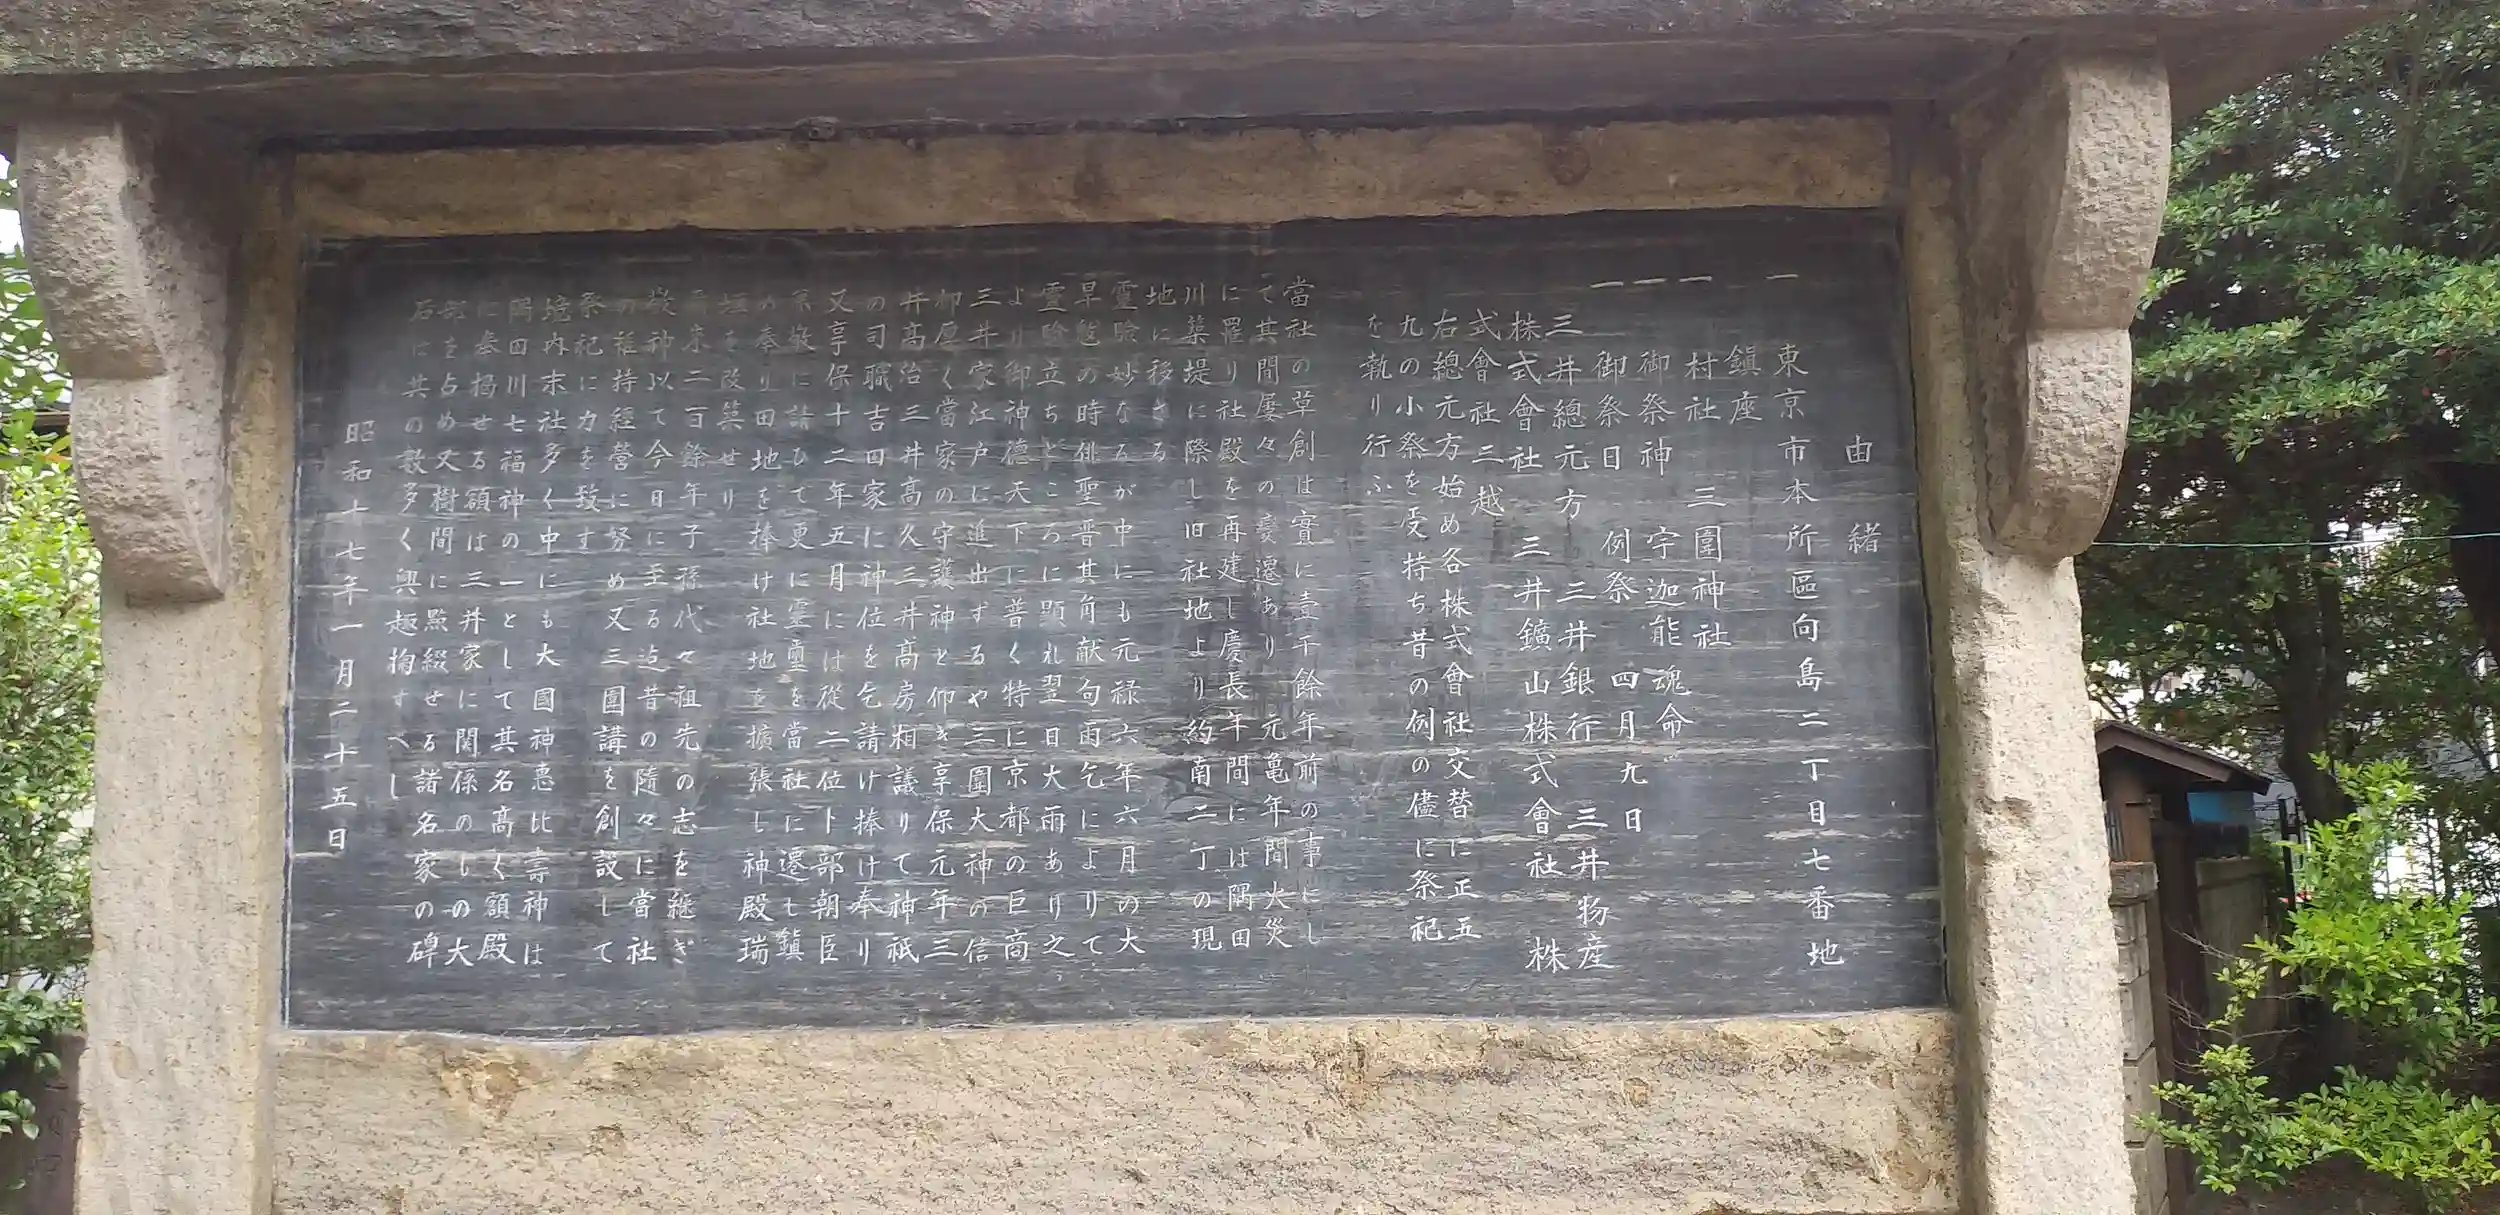 由緒
一 東京市本所區向島二丁目七番地
鎮座
一 村社 三圍神社
一 御祭神 宇迦能魂命
一 御祭日 例祭 四月九日
三井總元方 三井銀行 三井物産
株式會社 三井鑛山株式會社 株
式會社三越
右總元方始め各株式會社交替に正五
九の小祭を受持ち昔の例の儘に祭祀
を執り行ふ
當社の草創は實に壹千餘年前の事にし
て其間屡々の變遷あり 元亀年間火災
に罹り社殿を再建し慶長年間には隅田
川築堤に際し旧社地より約南二丁の現
地に移さる
靈驗妙なるが中にも元禄六年六月の大
旱魃の時俳聖晋其角献句雨乞によりて
靈驗立ちどころに顯れ翌日大雨あり之
より御神徳天下に普く特に京都の巨商
三井家江戸に進出ずるや三圍大神の信
仰厚く當家の守護神と仰き享保元年三
井高治三井高久三井髙房相議りて神祇
の司職吉田家に神位を乞請け捧け奉り
又享保十二年五月には從二位卜部朝臣
兼敬に請ひて更に靈璽を當社に遷し鎮
め奉り田地を捧け社地を擴張し神殿瑞
垣を改築せり
爾来二百餘年子孫代々祖先の志を継ぎ
敬神以て今日に至る迄昔の隨々に當社
の維持經營に努め又三圍講を創設して
祭祀に力を致す
境内末社多く中にも大國神惠比壽神は
隅田川七福神の一として其名髙く額殿
に奉掲せる額は三井家に関係のもの大
部を占め又樹間に點綴せる諸名家の碑
石は其の数多く興趣掬すへし
昭和十七年一月二十五日